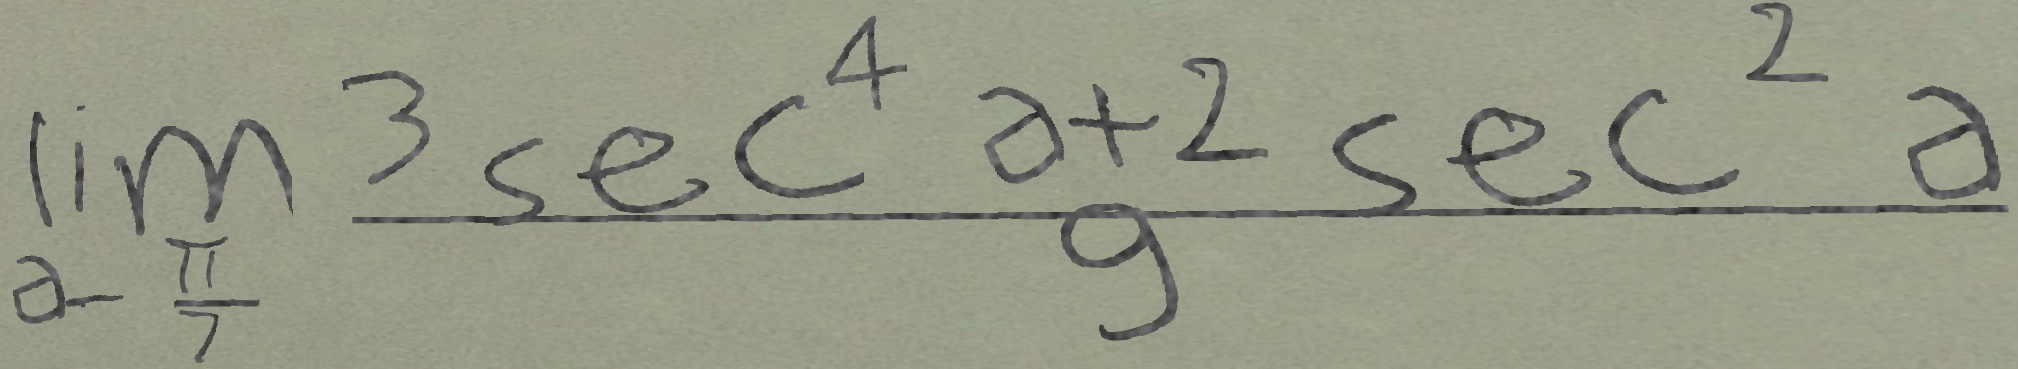 \lim_{a - \frac{\pi}{7}} \frac{3 \sec^4 a + 2 \sec^2 a}{9}